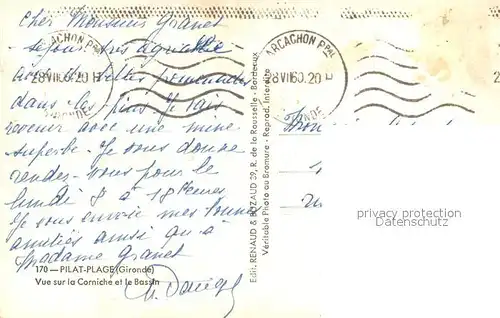 Cher Monsieur Granet
séjour très agréable
avec de belles promenades
dans les pins. Je vais
revenir avec une mine
superbe. Je vous donne
rendez-vous pour le
lundi 8 à 18 heures
Je vous envoie mes bonnes
amitiés ainsi qu'à
Madame Granet
170 — PILAT-PLAGE (Gironde)
Vue sur la Corniche et le Bassin
ARCACHON PPAL
28 VII 60.20 H
GIRONDE
ARCACHON PPAL
28 VII 60.20 H
GIRONDE
Edit. RENAUD & BUZAUD 39, R. de la Rousselle - Bordeaux
Véritable Photo au Bromure - Reprod. Interdite
Mon
privacy protection
www.oldthing.com